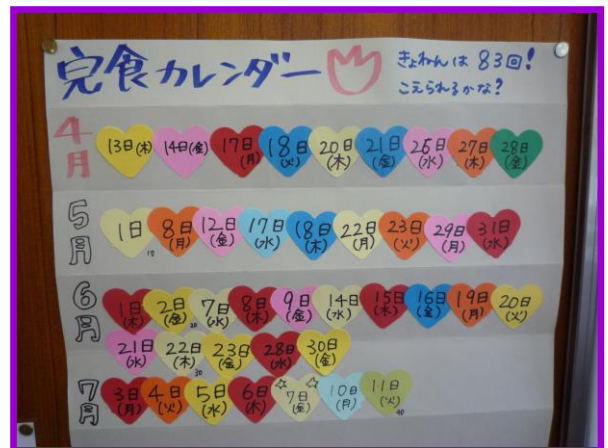 完食カレンダー
きょねんは 83回!
こえられるかな?
4月
13日(木) 14日(金) 17日(月) 18日(火) 20日(木) 21日(金) 26日(水) 27日(木) 28日(金)
5月
1日 10 8日(月) 12日(金) 17日(水) 18日(木) 22日(月) 23日(火) 29日(月) 31日(水)
6月
1日(木) 2日(金) 20 7日(水) 8日(木) 9日(金) 14日(水) 15日(木) 16日(金) 19日(月) 20日(火)
21日(水) 22日(木) 30 23日(金) 28日(水) 30日(金)
7月
3日(月) 4日(火) 5日(水) 6日(木) 7日(金) 10日(月) 11日(火) 40